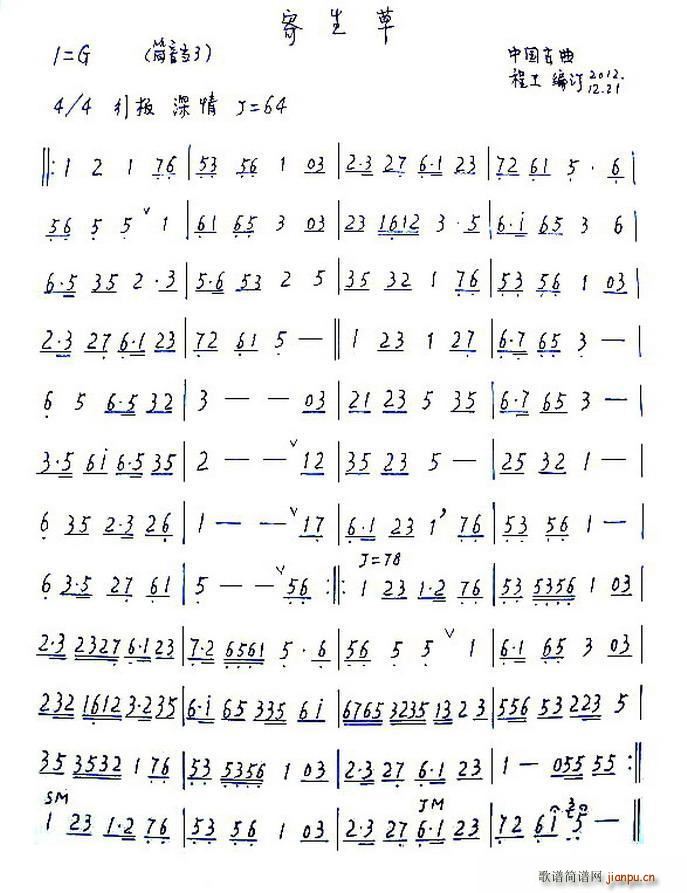 寄生草
1=G (筒音为3) 中国古曲
4/4 引板 深情 J=64 程工 编订 2012.12.21
‖: 1 2 1 76 | 53 56 1 03 | 2·3 27 6·1 23 | 72 61 5·6 |
56 5 5 ˅ 1 | 61 65 3 03 | 23 1612 3·5 | 6·i 65 3 6 |
6·5 35 2·3 | 5·6 53 2 5 | 35 32 1 76 | 53 56 1 03 |
2·3 27 6·1 23 | 72 61 5 — ‖ 1 23 1 27 | 6·7 65 3 — |
6 5 6·5 32 | 3 — — 03 | 21 23 5 35 | 6·7 65 3 — |
3·5 6i 6·5 35 | 2 — — ˅ 12 | 35 23 5 — | 25 32 1 — |
6 35 2·3 26 | 1 — — ˅ 17 | 6·1 23 1 ’ 76 | 53 56 1 — |
J=78
6 3·5 27 61 | 5 — — ˅ 56 :‖: 1 23 1·2 76 | 53 5356 1 03 |
2·3 2327 6·1 23 | 7·2 6561 5·6 | 56 5 5 ˅ 1 | 6·1 65 3 03 |
232 1612 3·235 | 6·i 65 335 6i | 6765 3235 13 2 3 | 556 53 223 5 |
35 3532 1 76 | 53 5356 1 03 | 2·3 27 6·1 23 | 1 — 055 55 :‖
SM JM
1 23 1·2 76 | 53 56 1 03 | 2·3 27 6·1 23 | 72 6i 5 — ‖
歌谱简谱网
jianpu.cn